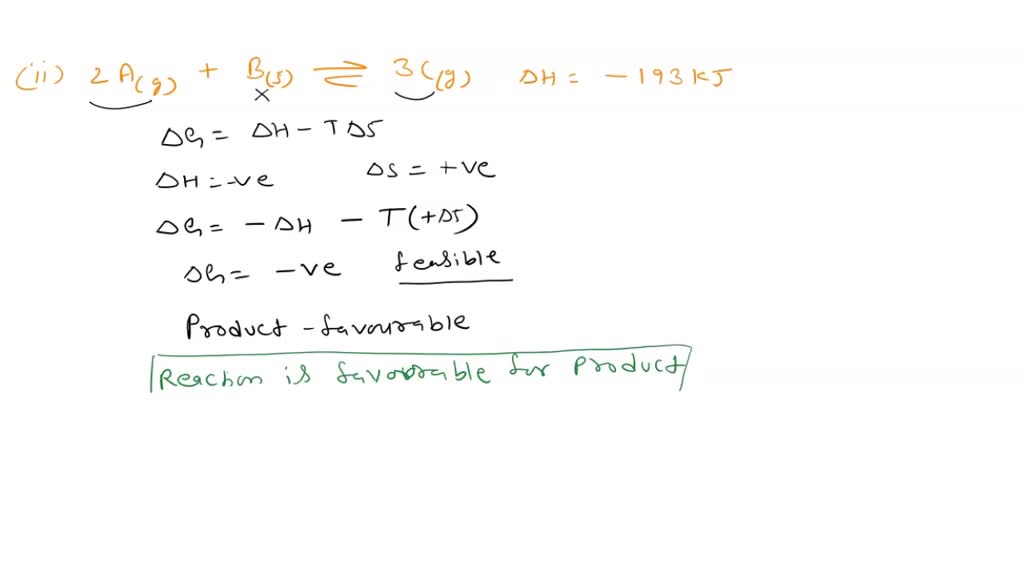 (ii) 2A(g) + B(s) ⇌ 3C(g) ΔH = -193KJ
×
ΔG = ΔH - TΔS
ΔH = -ve ΔS = +ve
ΔG = -ΔH - T(+ΔS)
ΔG = -ve feasible
Product - favourable
Reaction is favourable for product